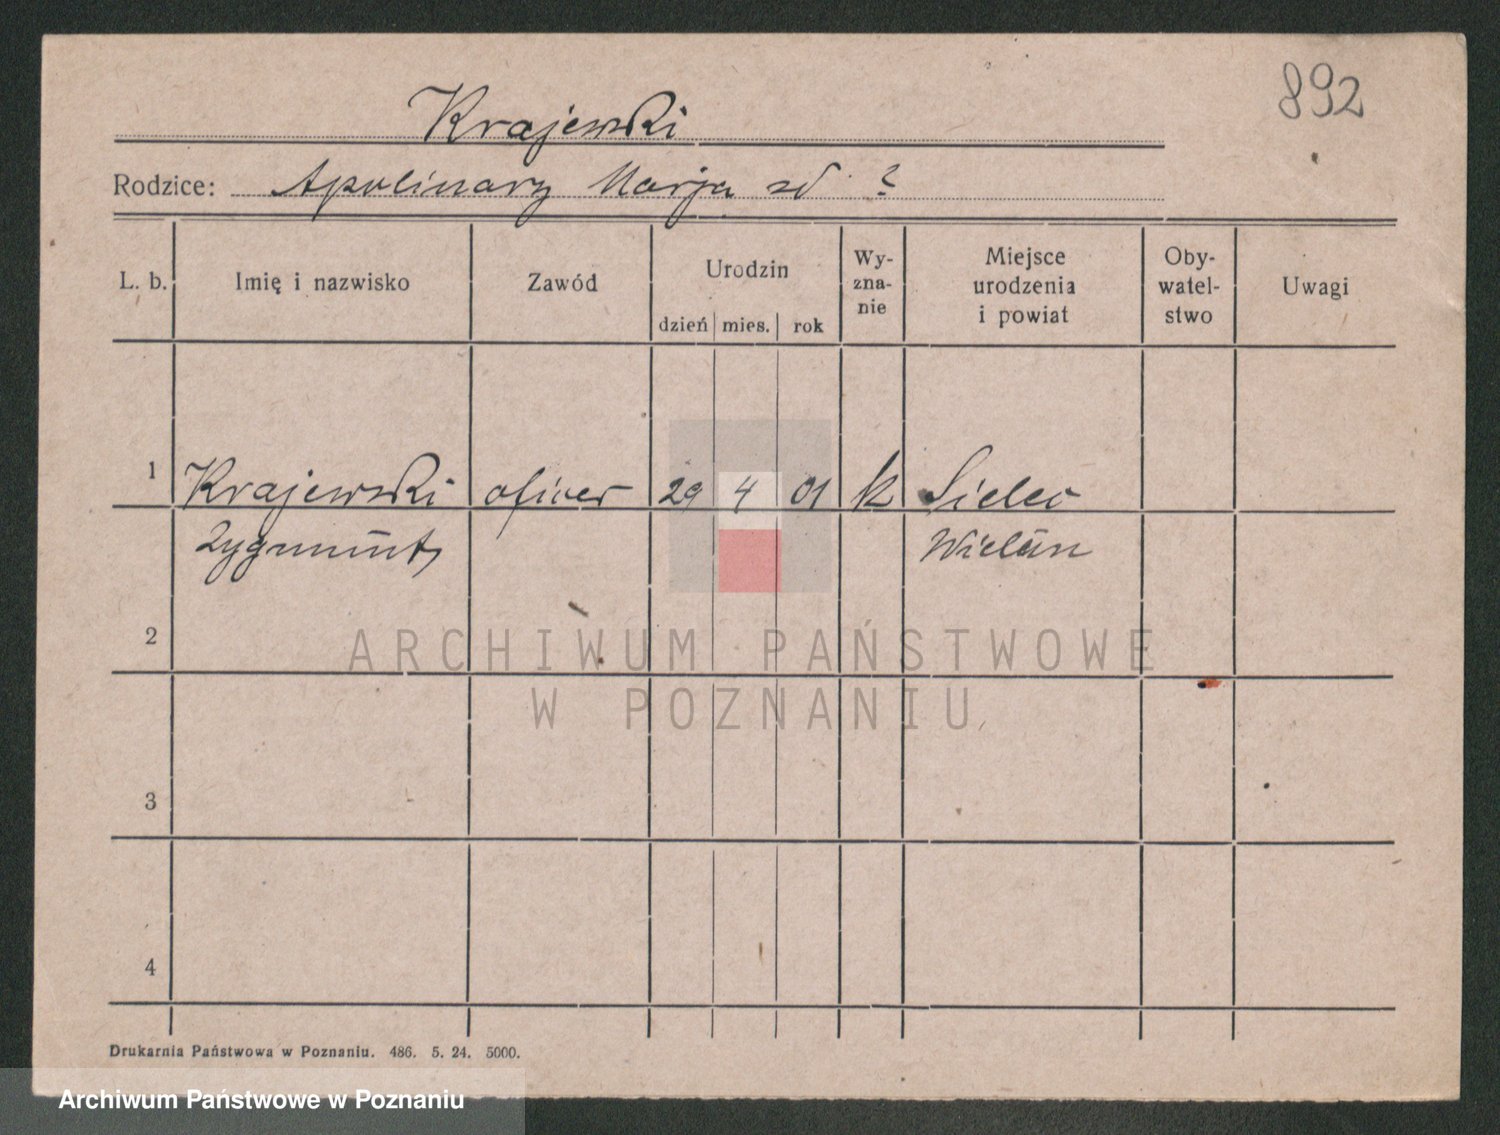 892
Krajewski
Rodzice: Apolinary Marja zd ?
L. b. Imię i nazwisko Zawód Urodzin dzień mies. rok Wy-zna-nie Miejsce urodzenia i powiat Oby-watel-stwo Uwagi
1 Krajewski oficer 29 4 01 k Sielec
Zygmunt Wieluń
2
ARCHIWUM PAŃSTWOWE
W POZNANIU
3
4
Drukarnia Państwowa w Poznaniu. 486. 5. 24. 5000.
Archiwum Państwowe w Poznaniu